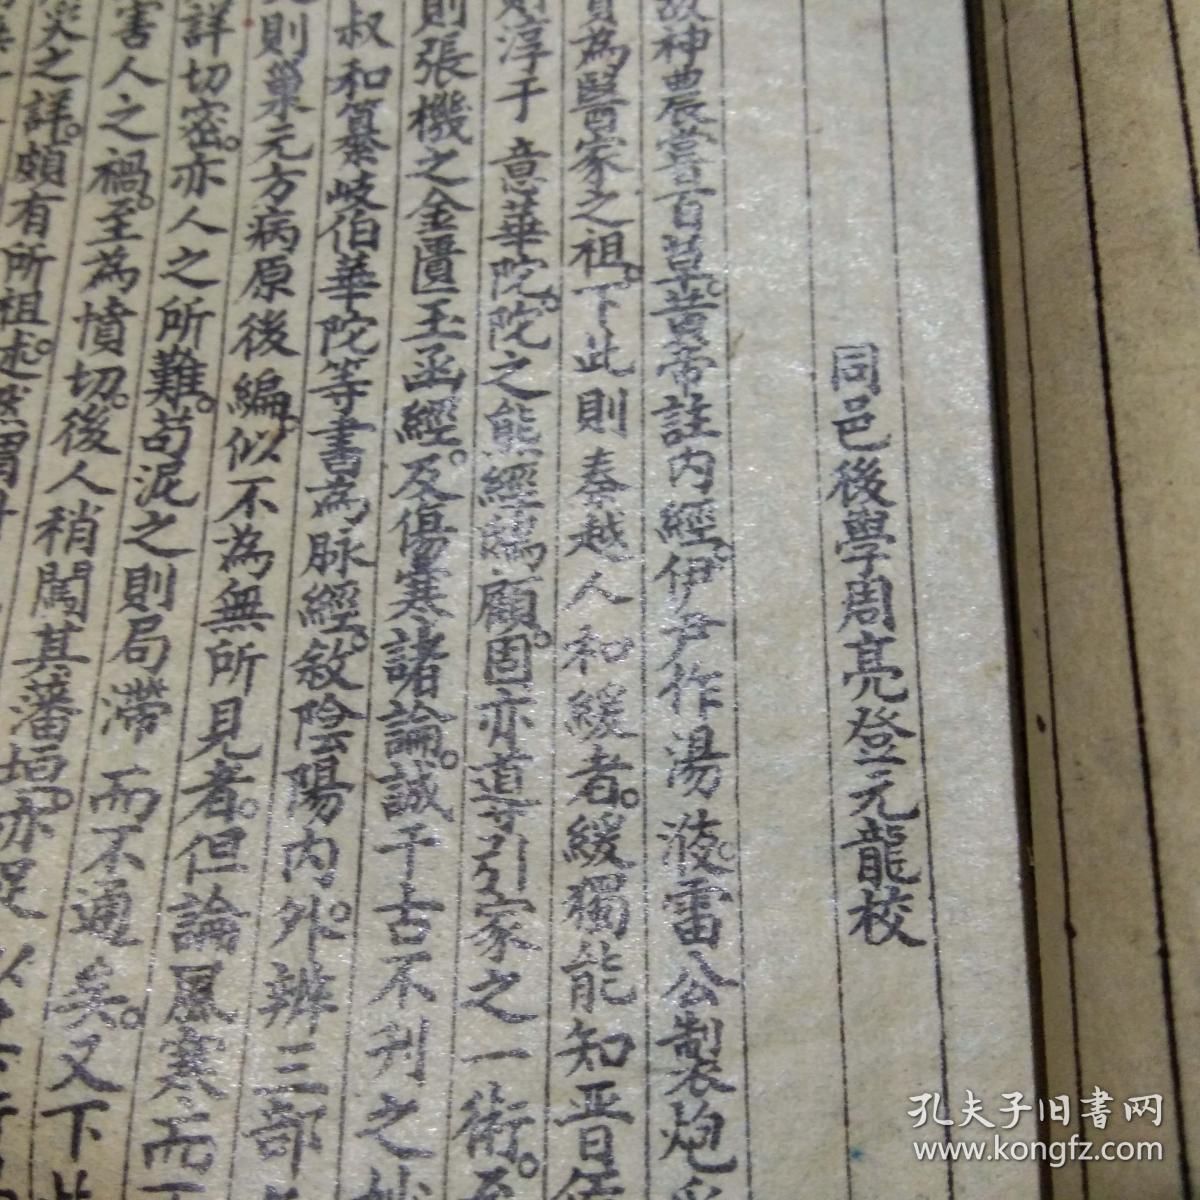 同邑後學周亮登元龍校
神農嘗百草黃帝註內經。伊尹作湯液。雷公製炮
為醫家之祖。下此則秦越人和緩者。緩獨能知晉
淳于意華陀。陀之熊經鴟顧。固亦導引家之一術。至
則張機之金匱玉函經。及傷寒諸論。誠千古不刋之
叔和纂岐伯華陀等書為脉經。敘陰陽內外。辨三部
則巢元方病原後編。似不為無所見者。但論風寒而
詳切密。亦人之所難。苟泥之則局滯而不通矣。又下
害人之禍。至為憤切。後人稍闖其藩垣。亦足以
災之詳。頗有所祖述。然
孔夫子旧书网
www.kongfz.com